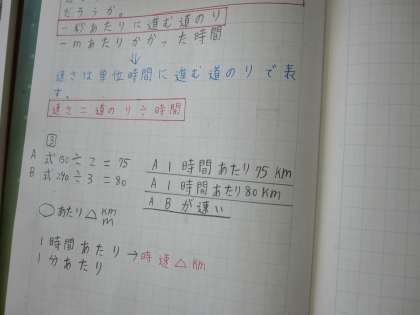 だろうか。
一秒あたりに進む道のり
一mあたりかかった時間
↓
速さは単位時間に進む道のりで表
す。
速さ=道のり÷時間
3
A 式150÷2=75
A 1時間あたり75km
B 式240÷3=80
A 1時間あたり80km
A Bが速い
○あたり△km
m
1時間あたり→時速△km
1分あたり